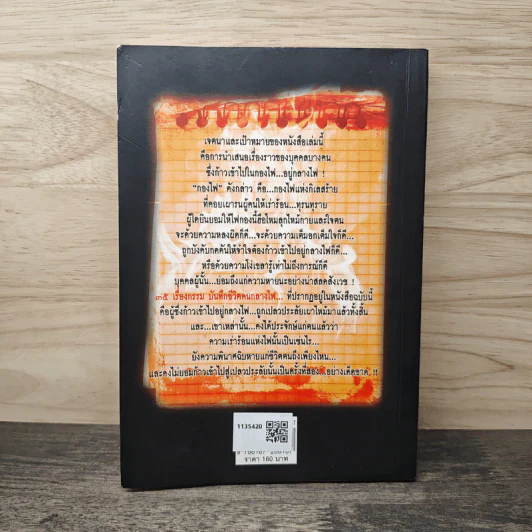 เจตนาและเป้าหมายของหนังสือเล่มนี้
คือการนำเสนอเรื่องราวของบุคคลบางคน
ซึ่งก้าวเข้าไปในกองไฟ...อยู่กลางไฟ !
"กองไฟ" ดังกล่าว คือ...กองไฟแห่งกิเลสร้าย
ที่คอยเผารนผู้คนให้เร่าร้อน...ทุรนทุราย
ผู้ใดยินยอมให้ไฟกองนี้ฮือโหมลุกไหม้กายและใจตน
จะด้วยความหลงผิดก็ดี...จะด้วยความเต็มอกเต็มใจก็ดี...
ถูกบังคับกดดันให้จำใจต้องก้าวเข้าไปอยู่กลางไฟก็ดี...
หรือด้วยความโง่เขลารู้เท่าไม่ถึงการณ์ก็ดี
บุคคลผู้นั้น...ย่อมถึงแก่ความหายนะอย่างน่าสลดสังเวช !
๓๕ เรื่องกรรม บันทึกชีวิตคนกลางไฟ... ที่ปรากฏอยู่ในหนังสือฉบับนี้
คือผู้ซึ่งก้าวเข้าไปอยู่กลางไฟ...ถูกเปลวประลัยเผาไหม้มาแล้วทั้งสิ้น
และ...เขาเหล่านั้น...คงได้ประจักษ์แก่ตนแล้วว่า
ความเร่าร้อนแห่งไฟนั้นเป็นเช่นไร...
ยังความพินาศฉิบหายแก่ชีวิตตนถึงเพียงไหน...
และคงไม่ยอมก้าวเข้าไปสู่เปลวประลัยนั้นเป็นครั้งที่สอง...อย่างเด็ดขาด !!
1135420
ราคา 160 บาท